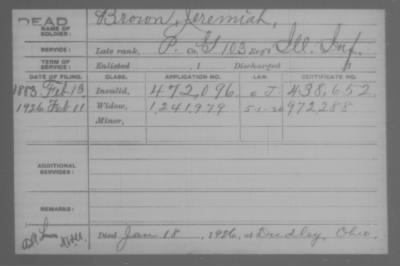 DEAD
NAME OF SOLDIER: Brown, Jeremiah,
SERVICE: Late rank, P. Co. G 103 Reg't Ill. Inf.
TERM OF SERVICE: Enlisted , 1 Discharged , 1
DATE OF FILING. CLASS. APPLICATION NO. LAW. CERTIFICATE NO.
1883 Feb 13 Invalid, 472,096 J. 438,652
1926 Feb 11 Widow, 1,241,979 5-1-20 972288
Minor,
ADDITIONAL SERVICES:
REMARKS:
Died Jan 18, 1926, at Dudley, Ohio.